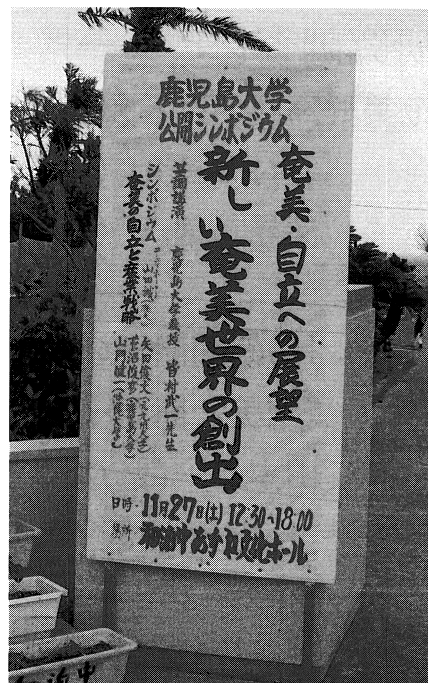 鹿児島大学
公開シンポジウム
奄美・自立への展望
新しい奄美世界の創出
基調講演 鹿児島大学教授 皆村武一先生
シンポジウム
奄美の自立と産業戦略
日時・11月27日(土) 12:30~18:00
場所 和泊中あすね文化ホール
泊中